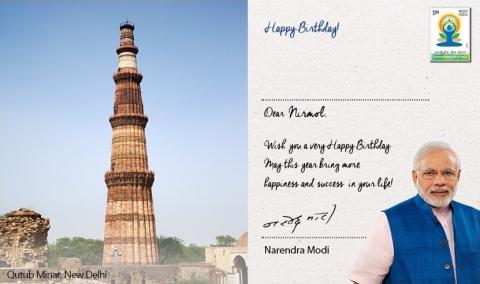 Happy Birthday!
Dear Nirmol,
Wish you a very Happy Birthday.
May this year bring more
happiness and success in your life!
Narendra Modi
Qutub Minar, New Delhi